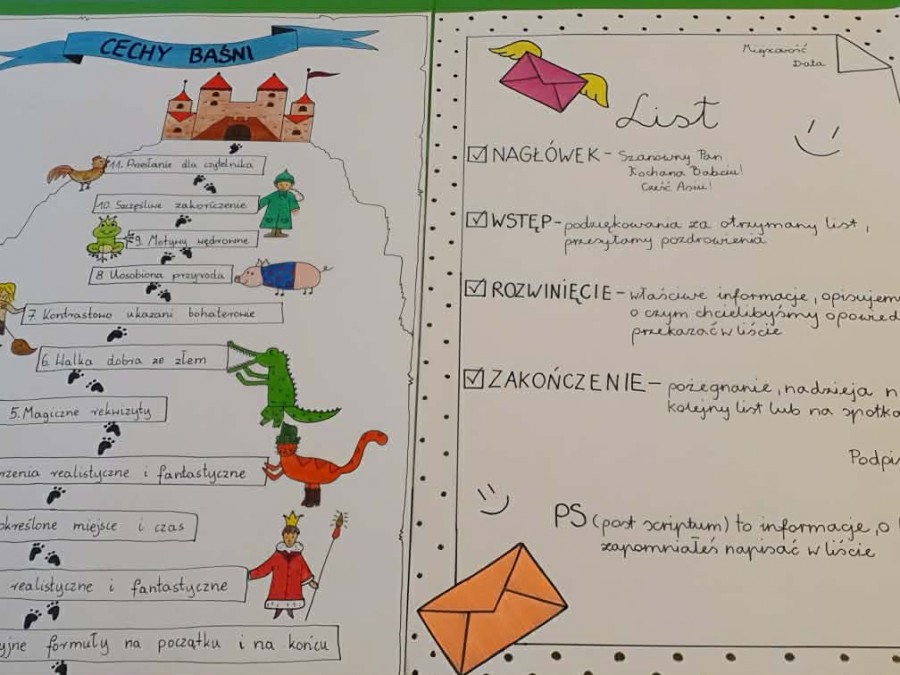 CECHY BAŚNI
11. Przesłanie dla czytelnika
10. Szczęśliwe zakończenie
9. Motywy wędrowne
8. Uosobiona przyroda
7. Kontrastowo ukazani bohaterowie
6. Walka dobra ze złem
5. Magiczne rekwizyty
rzenia realistyczne i fantastyczne
określone miejsce i czas
realistyczne i fantastyczne
yjne formuły na początku i na końcu
Miejscowość
Data
List
NAGŁÓWEK - Szanowny Pan
Kochana Babciu!
Cześć Asiu!
WSTĘP - podziękowania za otrzymany list,
przesyłamy pozdrowienia
ROZWINIĘCIE - właściwe informacje, opisujem
o czym chcielibyśmy opowied
przekazać w liście
ZAKOŃCZENIE - pożegnanie, nadzieja n
kolejny list lub na spotka
Podpi
PS (post scriptum) to informacje, o
zapomniałeś napisać w liście